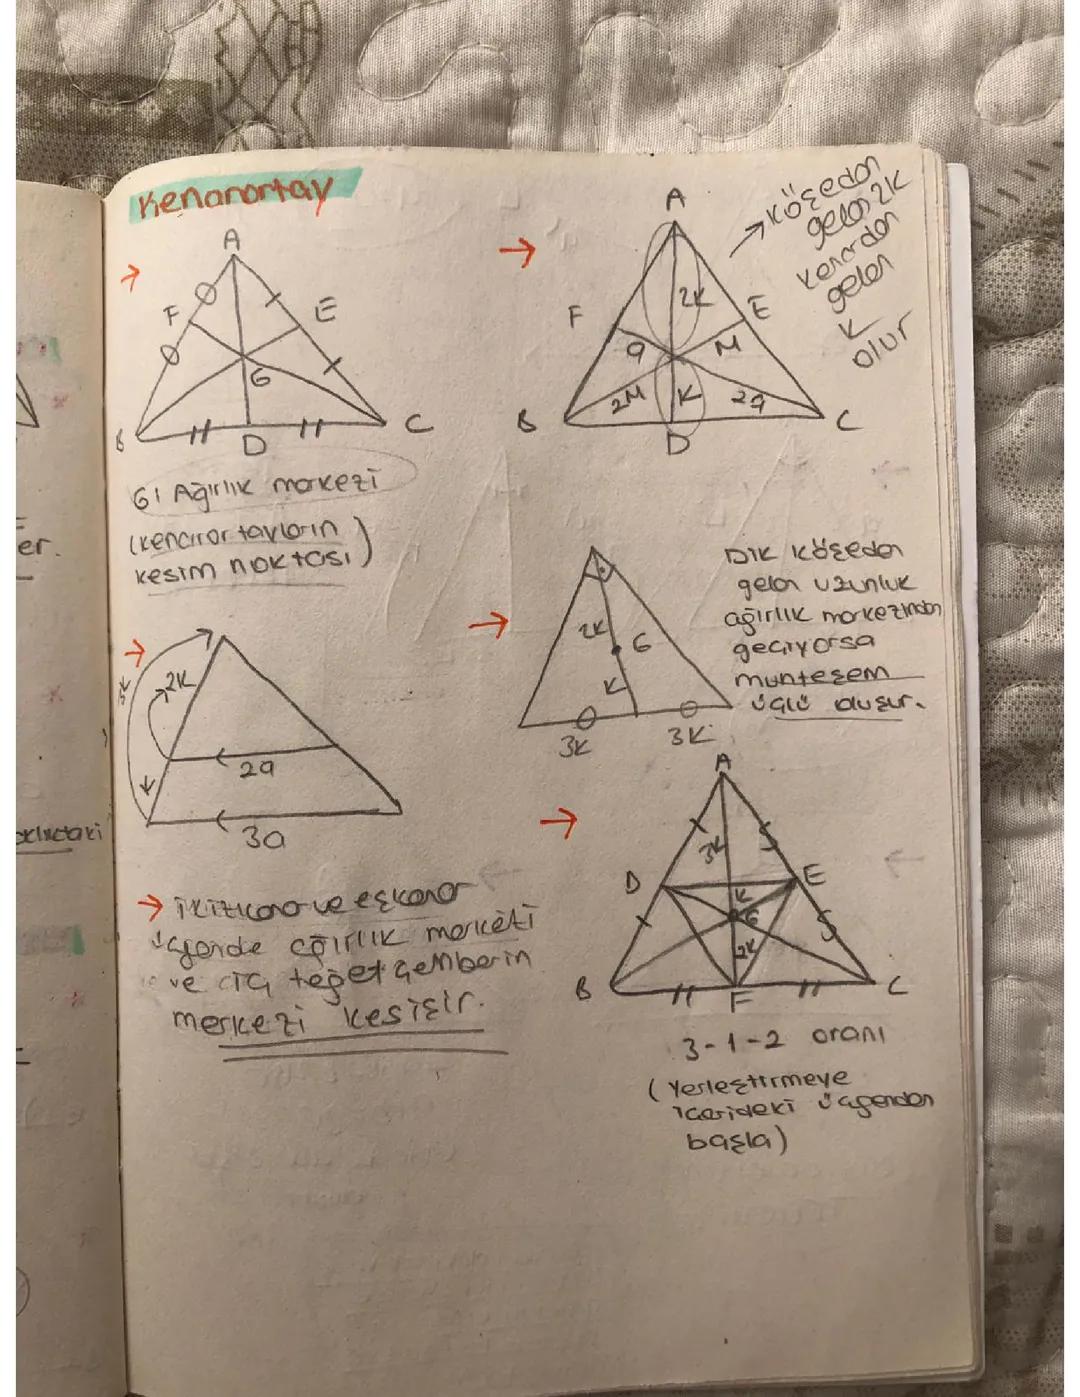 Kenarortay
→
A
F
E
G
B
D
C
G: Ağırlık merkezi
(kenarortayların
kesim noktası)
→
A
F
E
2K
a
M
2M
K
2a
B
D
C
→ Köşeden
gelen 2K
kenardan
gelen
K
olur
→
3K
2K
K
2a
3a
→
2K
G
K
3K
3K
Dik köşeden
gelen uzunluk
ağırlık merkezinden
geçiyorsa
muhteşem
üçlü oluşur.
→ ikizkenar ve eşkenar
üçgende ağırlık merkezi
ve iç teğet çemberin
merkezi kesişir.
→
A
3K
D
E
K
G
2K
B
F
C
3-1-2 oranı
(Yerleştirmeye
içerideki üçgenden
başla)
er.